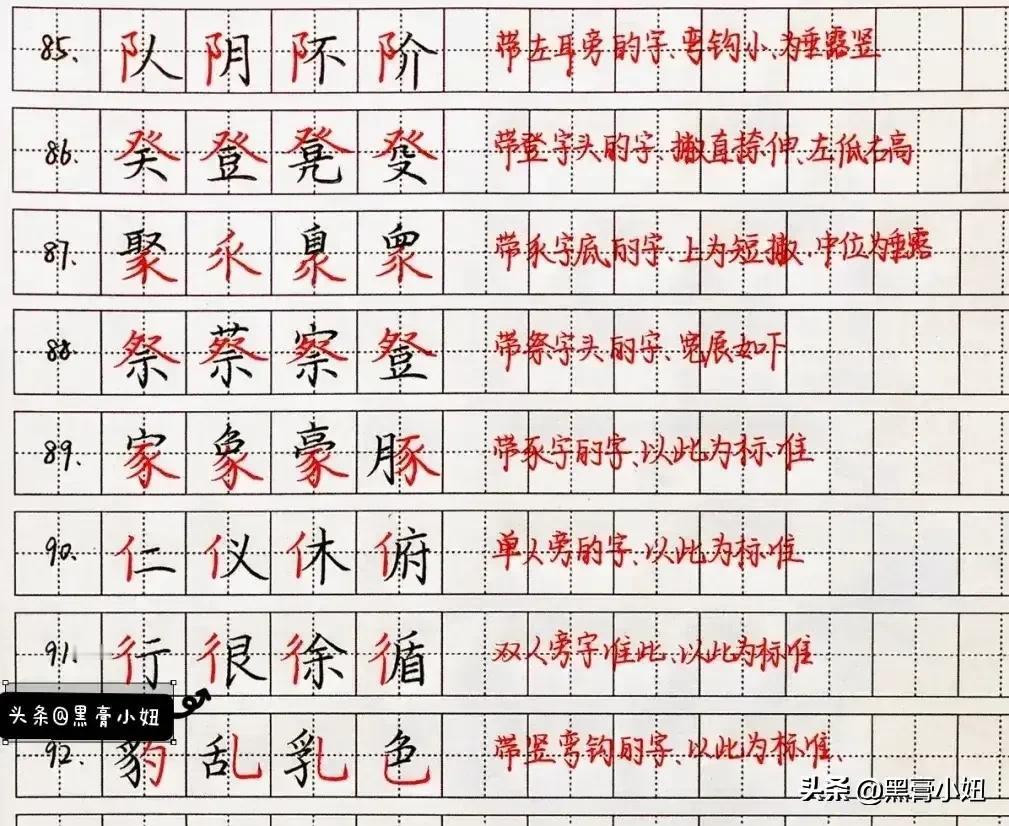 85. 队 阴 阫 阶 带左耳旁的字、弯钩小、为垂露竖
86. 癸 登 凳 癹 带登字头的字、撇直捺伸、左低右高
87. 聚 乑 臮 眾 带乑字底的字、上为短撇、中位为垂露
88. 祭 蔡 察 带祭字头的字、宽展如下
89. 家 象 豪 豚 带豕字的字、以此为标准
90. 仁 仪 休 俯 单人旁的字、以此为标准
91. 行 很 徐 循 双人旁字准此、以此为标准
头条@黑膏小妞
92. 豹 乱 乳 色 带竖弯钩的字、以此为标准、
头条 @黑膏小妞